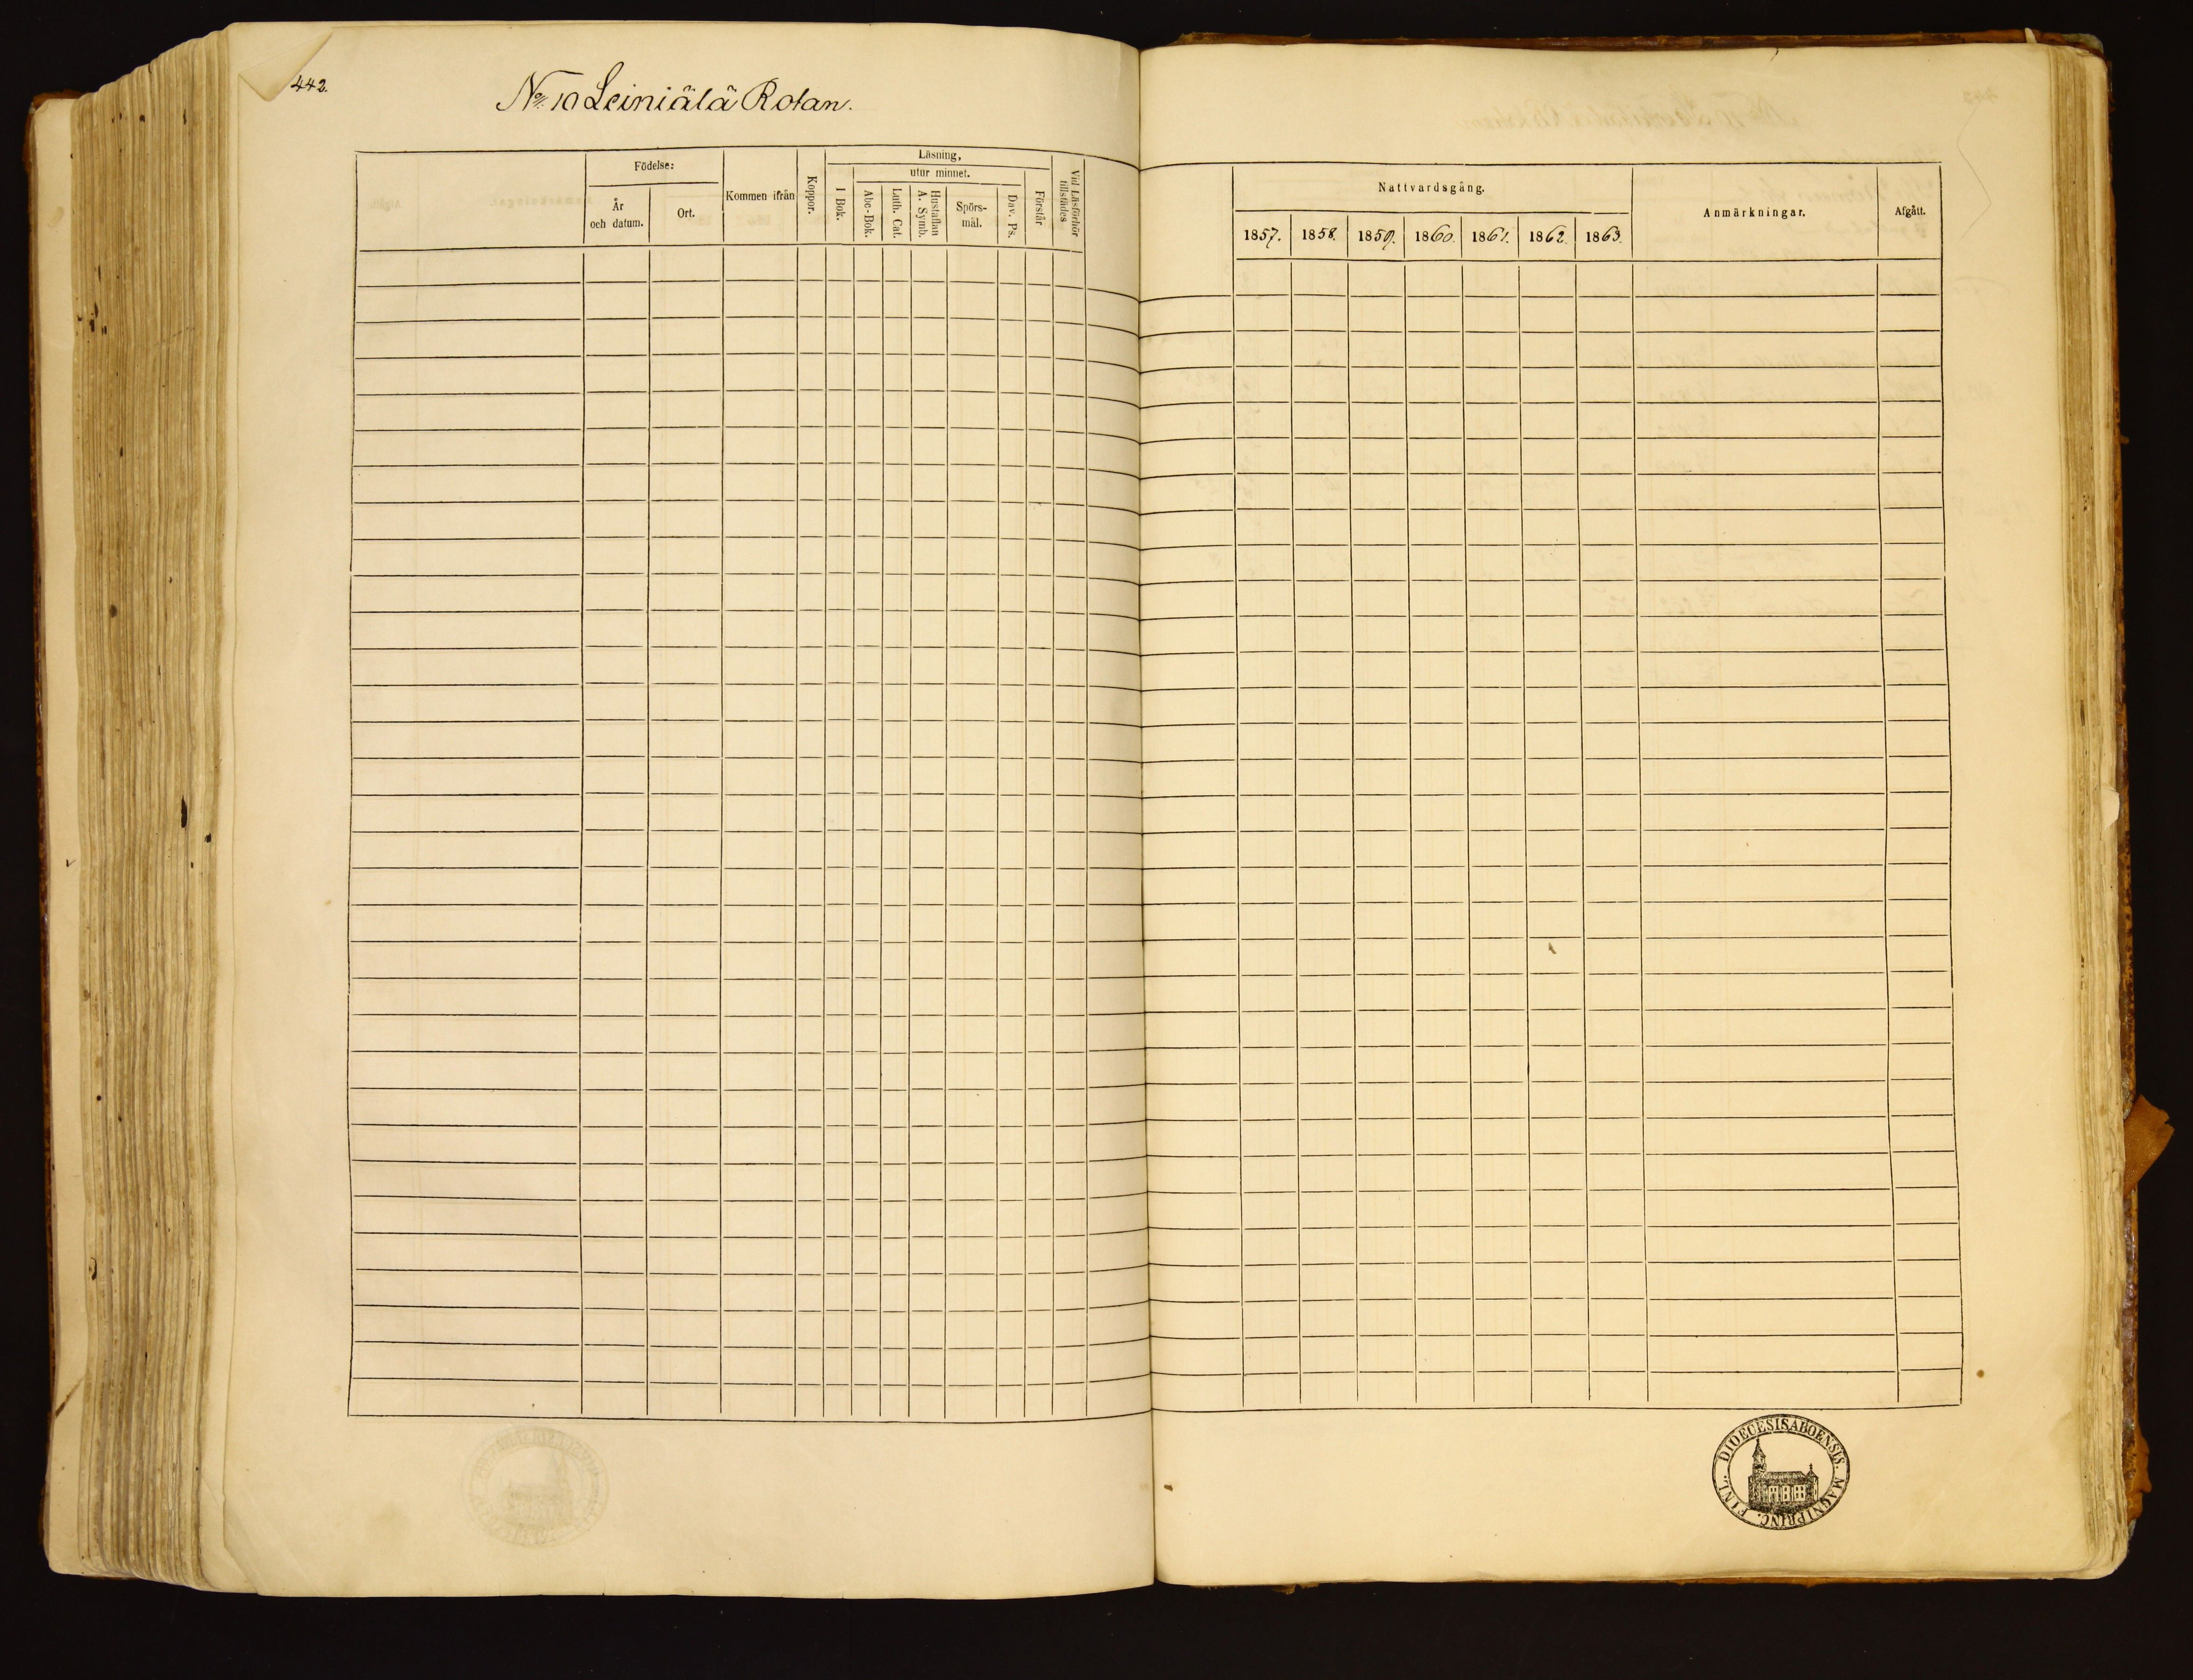 442.
No 10 Leiniälä Rotan.
Födelse:
År och datum.
Ort.
Kommen ifrån
Koppor.
Läsning,
utur minnet.
I Bok.
Abc-Bok.
Luth. Cat.
Hustaflan A. Symb.
Spörsmål.
Dav. Ps.
Förstår
Vid Läsförhör tillstädes
Nattvardsgång.
1857. 1858. 1859. 1860. 1861. 1862. 1863.
Anmärkningar.
Afgått.
DIOECESIS ABOENSIS. MAGNI PRINC. FINL.